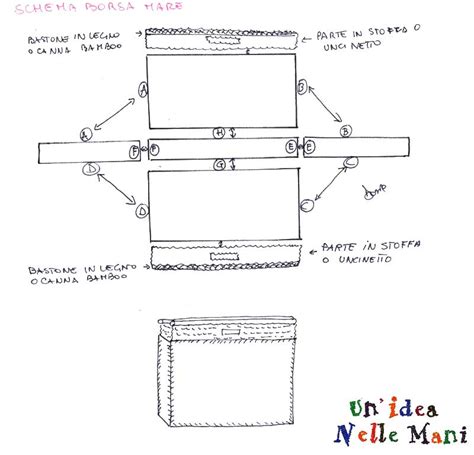 SCHEMA BORSA MARE
BASTONE IN LEGNO
O CANNA BAMBOO
PARTE IN STOFFA O
UNCINETTO
A
B
A
H
B
F
F
E
E
D
G
C
D
C
BASTONE IN LEGNO
O CANNA BAMBOO
PARTE IN STOFFA
O UNCINETTO
un'idea
Nelle Mani